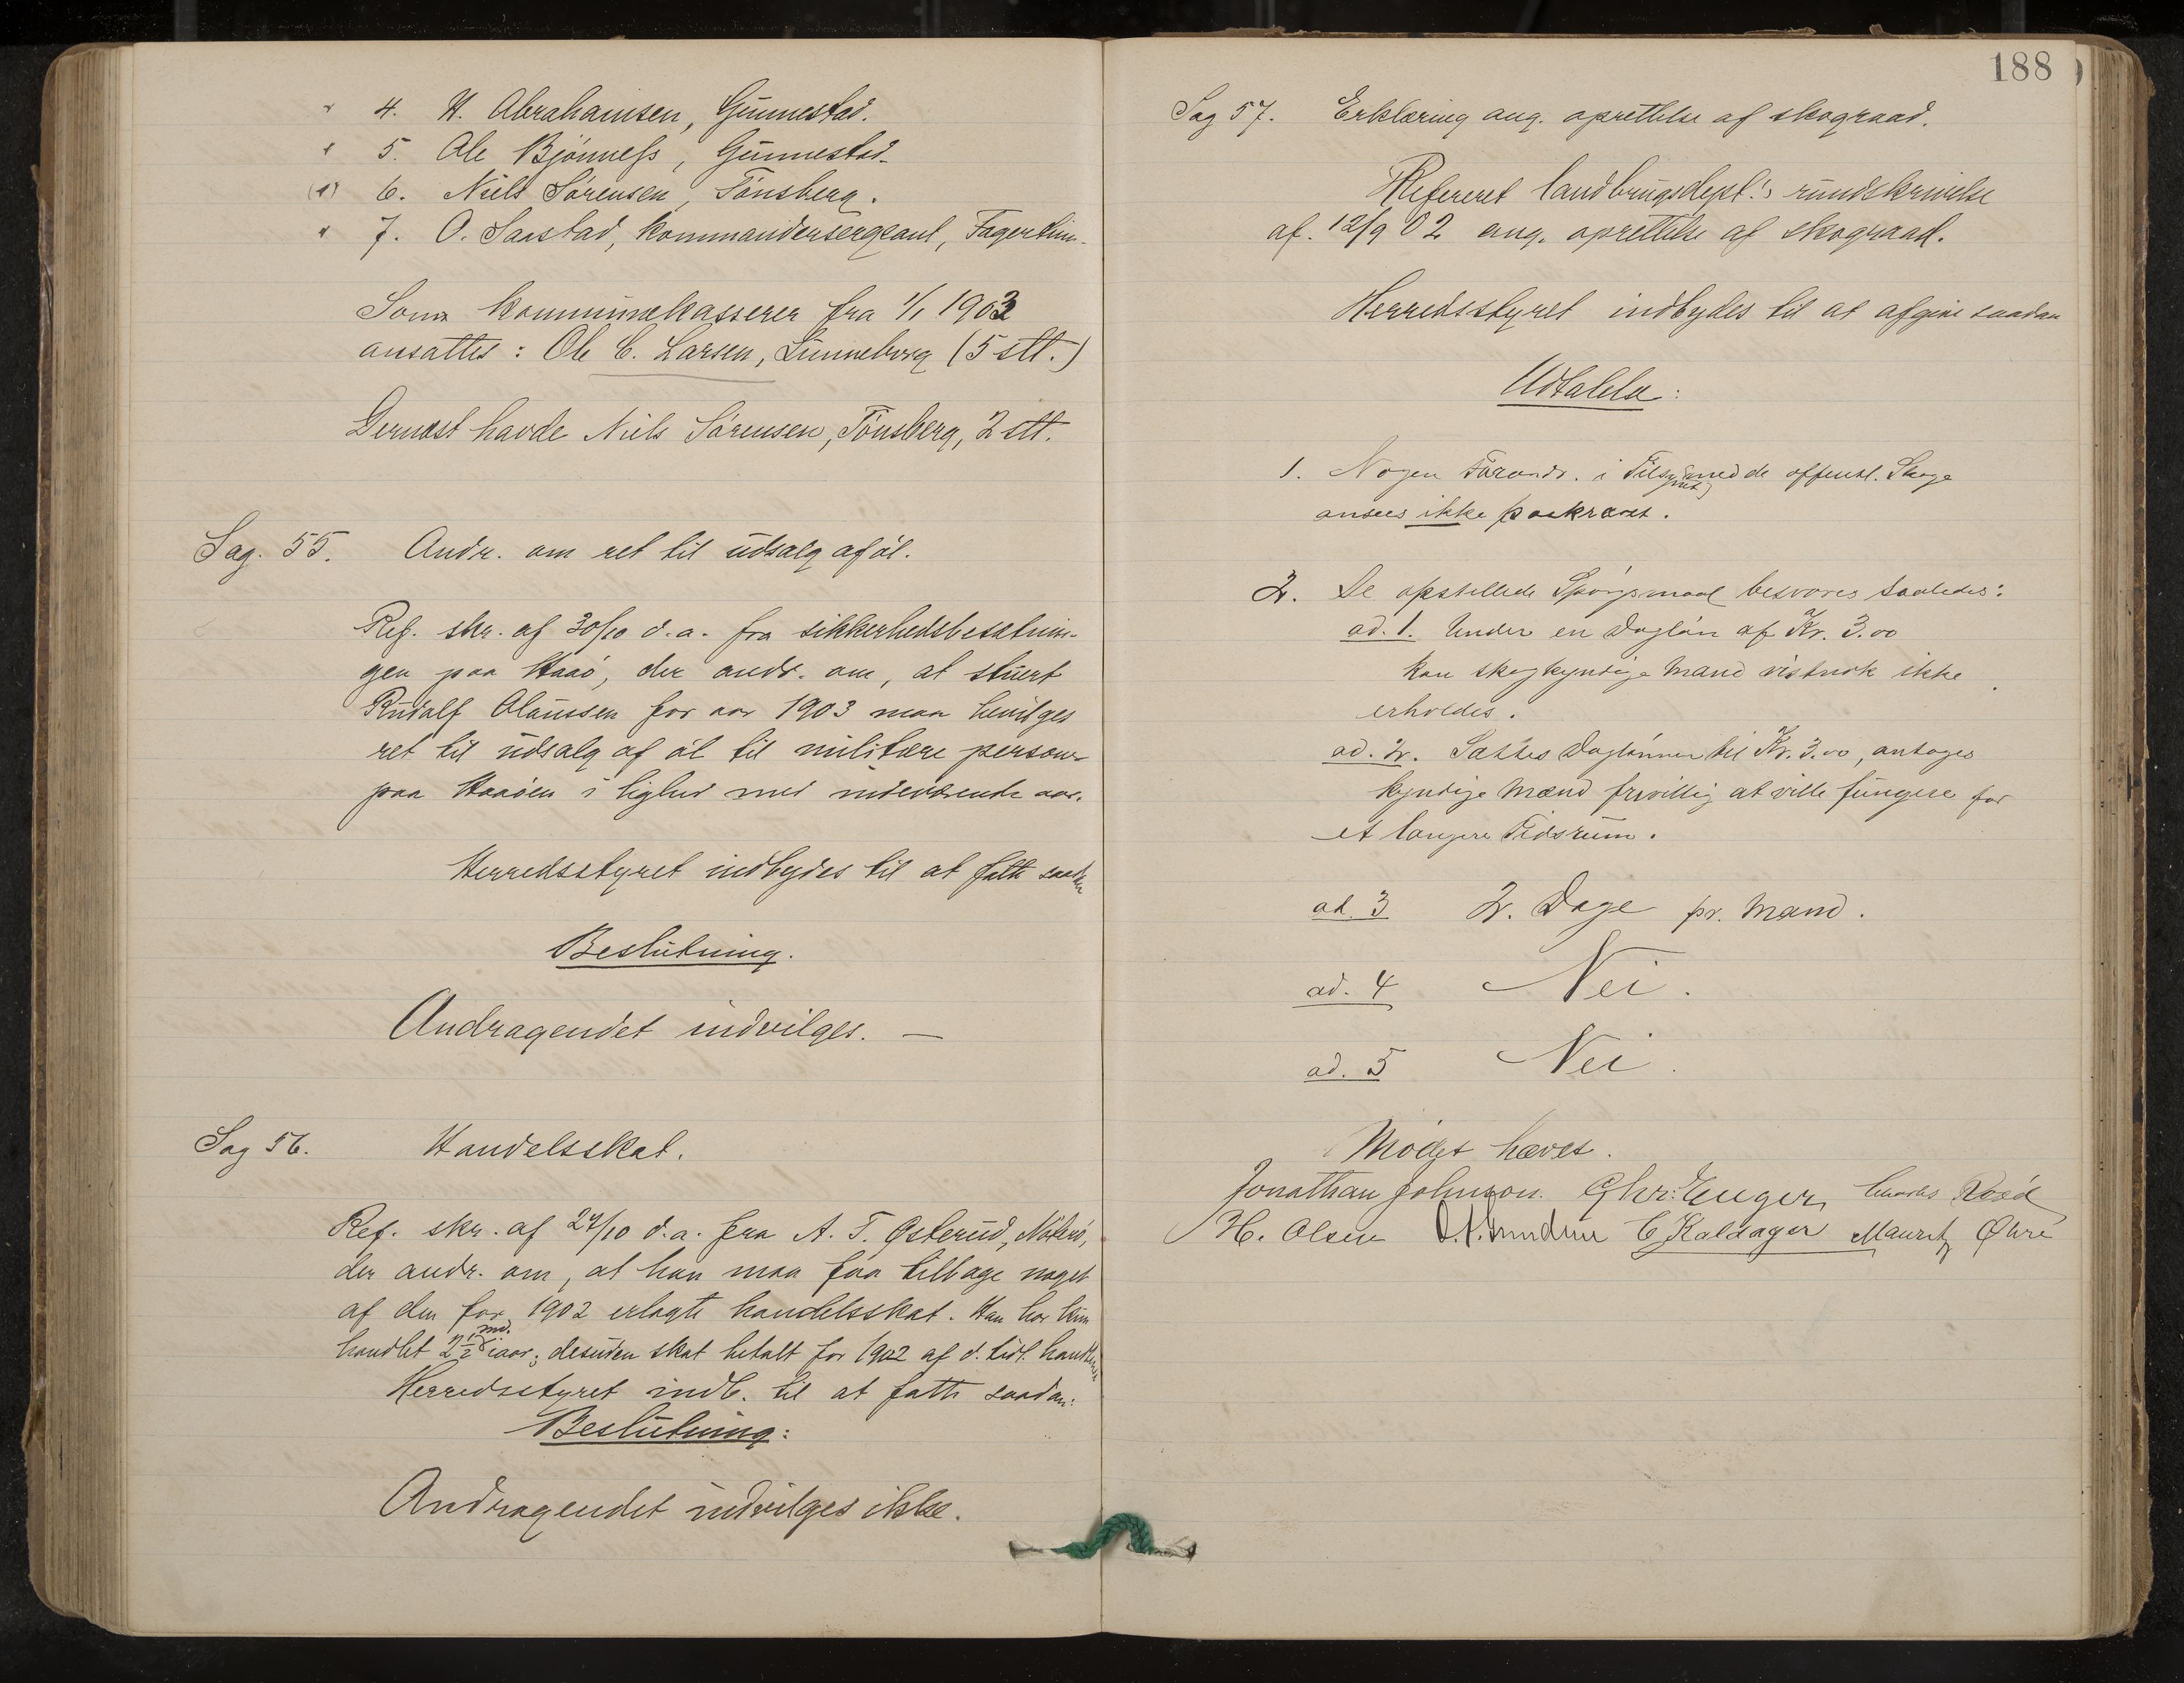 4. H. Abrahamsen, Gunnestad.
5. Ole Bjønness, Gunnestad.
(1) 6. Niels Sørensen, Tønsberg.
7. O. Saastad, kommandersergeant,
Som kommunekasserer fra 1/1 1903
ansattes: Ole C. Larsen, Linneborg (5 stt.)
Dernæst havde Niels Sørensen, Tønsberg, 2 stt.
Sag. 55. Andr. om ret til udsalg af øl.
Ref. skr. af 30/10 d.a. fra sikkerhedsbesætnin-
gen paa Haaø, der andr. om, at stuert
Rudolf Olaussen for aar 1903 maa bevilges
ret til udsalg af øl til militære personer
paa Haaøen i lighed med indeværende aar.
Herredsstyret indbydes til at fatte saadan
Beslutning.
Andragendet indvilges. —
Sag 56. Handelsskat.
Ref. skr. af 24/10 d.a. fra A. T. Østerud, Nøterø,
der andr. om, at han maa faa tilbage noget
af den for 1902 erlagte handelsskat. Han har kun
handlet 2 1/2 md. iaar; desuden skat betalt for 1902 af d. tidl. handlende
Herredsstyret indb. til at fatte saadan:
Beslutning:
Andragendet indvilges ikke.
188
Sag 57. Erklæring ang. oprettelse af skograad.
Refereret landbrugsdept.'s rundskrivelse
af 12/9 02 ang. oprettelse af skograad.
Herredsstyret indbydes til at afgive saadan
Udtalelse:
1. Nogen Forandr. i Tilsynet med de offentl. Skoge
ansees ikke paakrævet.
2. De opstillede Spørgsmaal besvares saaledes:
ad. 1. Under en Dagløn af Kr. 3.00
kan skogkyndige Mænd vistnok ikke
erholdes.
ad. 2. Sættes Daglønnen til Kr. 3.00, antages
kyndige Mænd frivillig at ville fungere for
et længere Tidsrum.
ad. 3 2. Dage pr. Mand.
ad. 4 Nei.
ad. 5 Nei.
Mødet hævet.
Jonathan Johnson. Chr: Enger
H. Olsen C Kaldager Mauritz Øhre